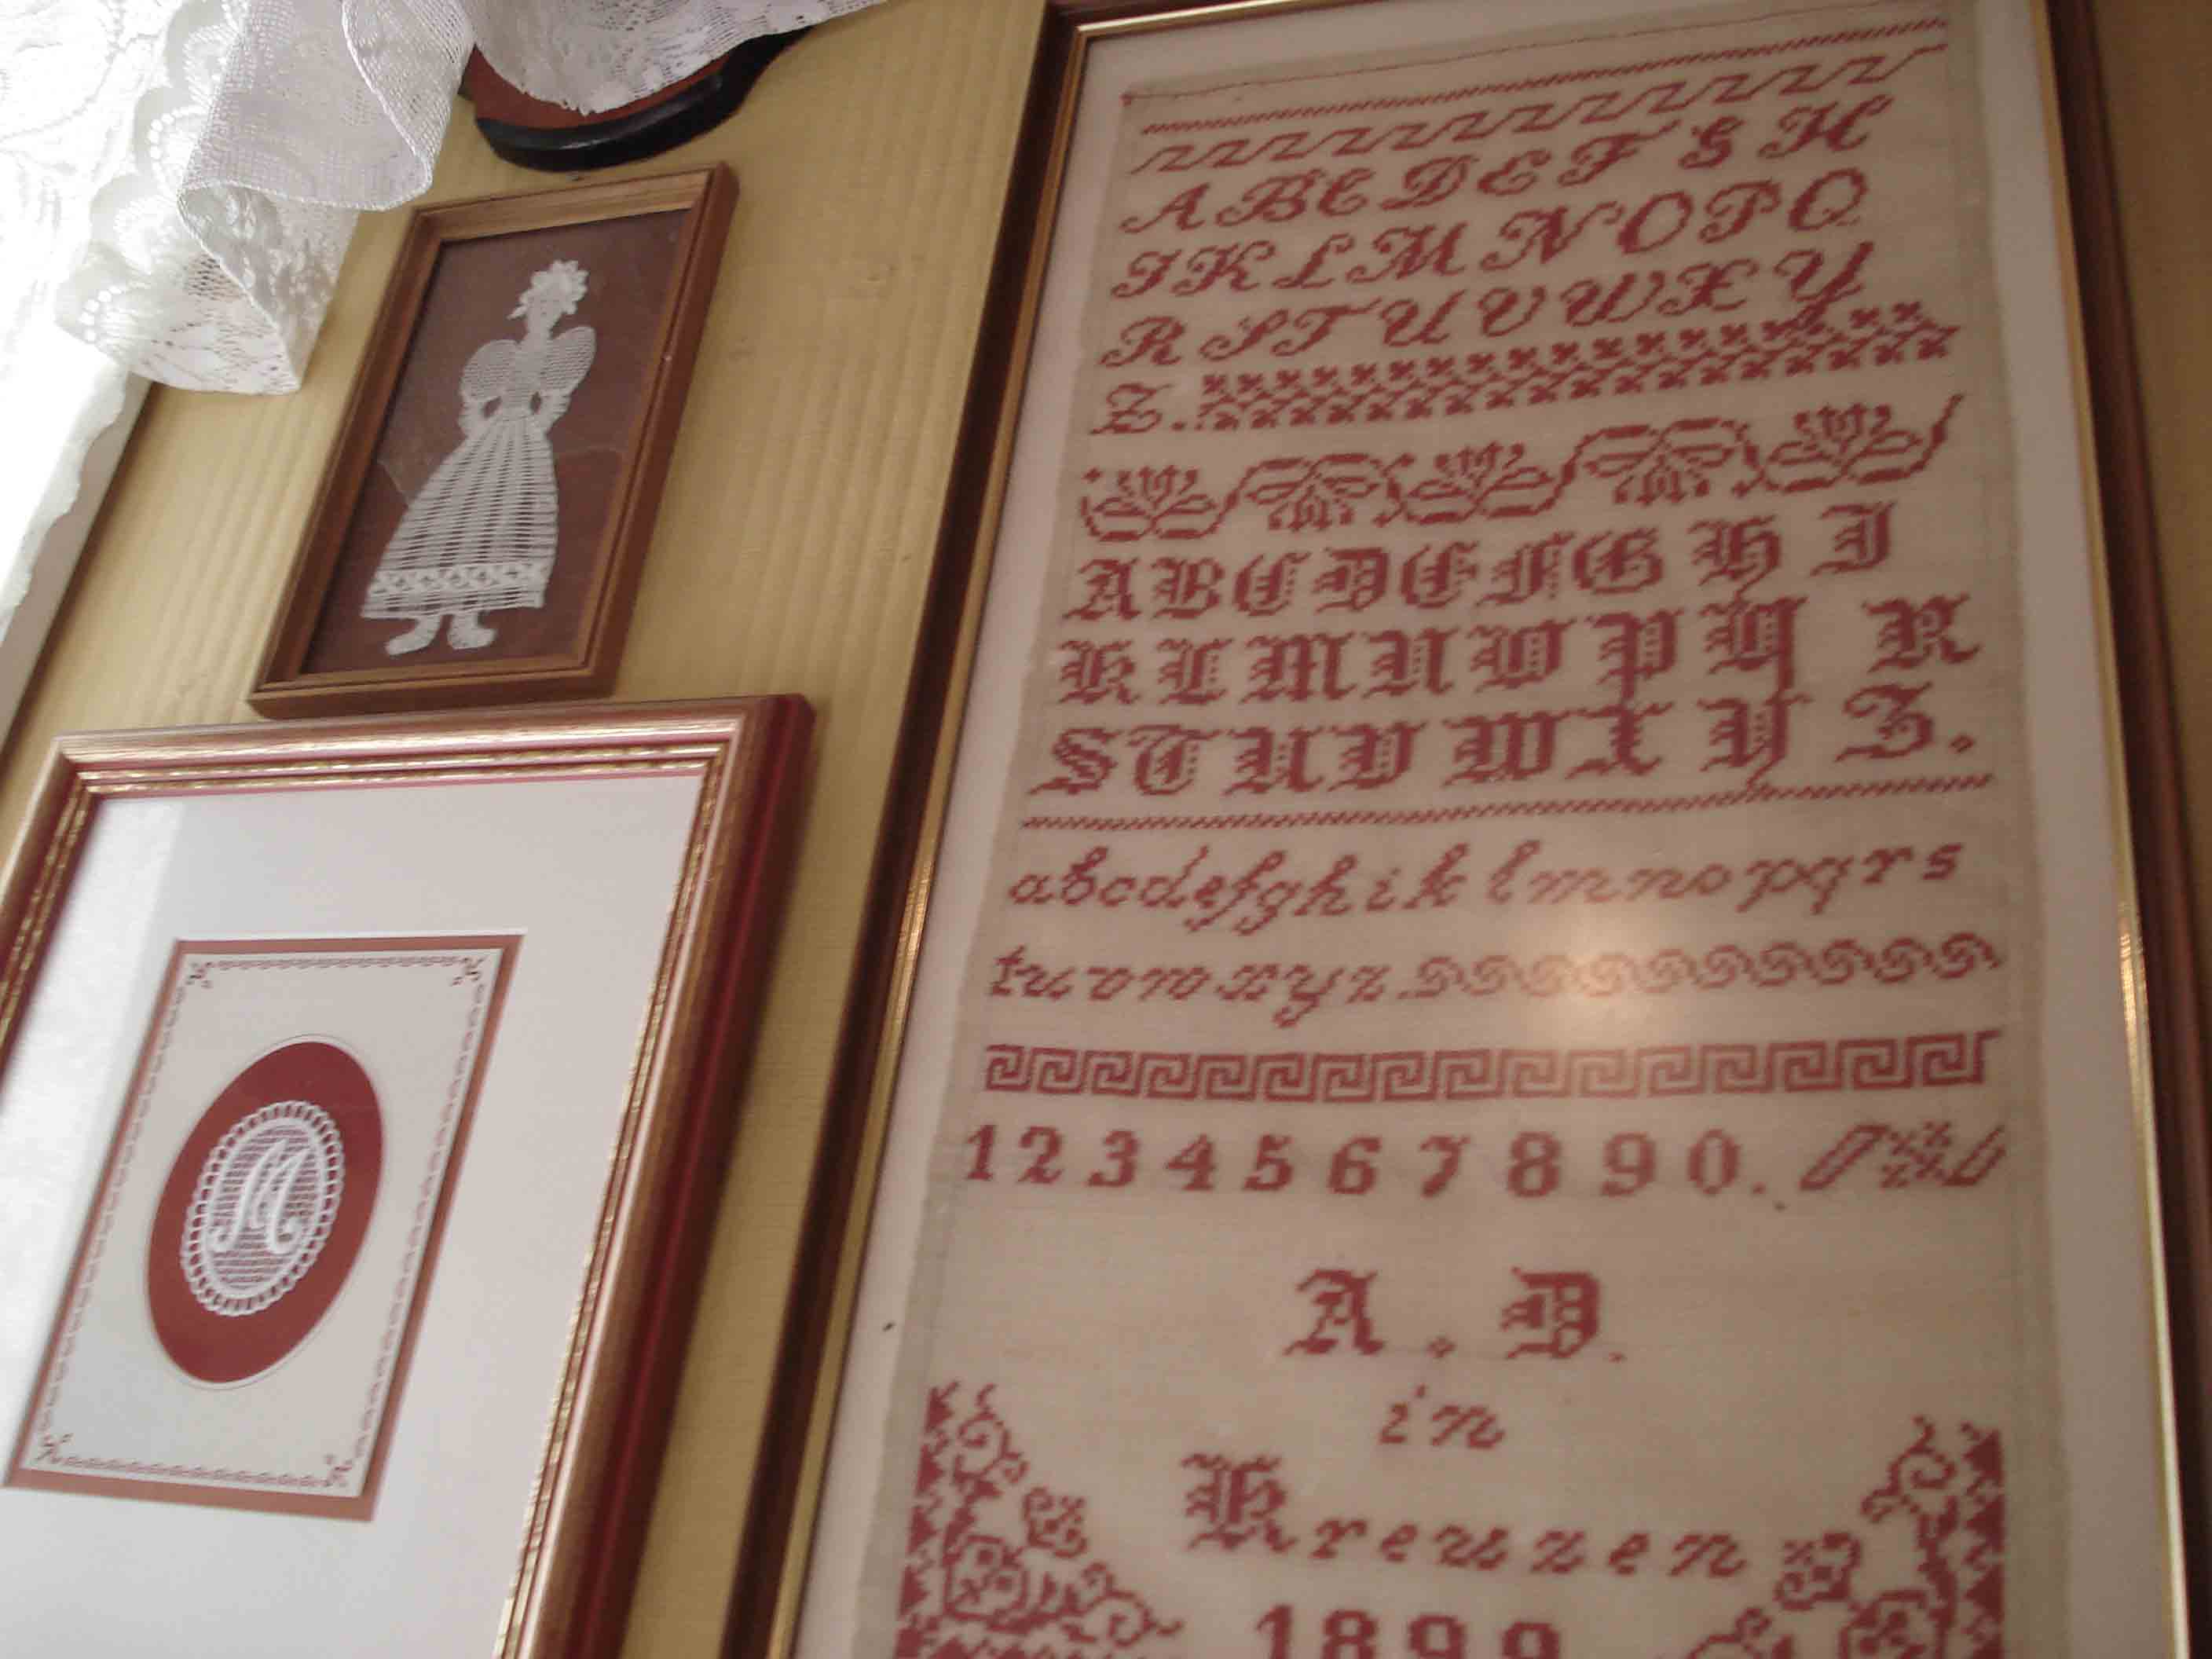 ABCDEFGH
IKLMNOPQ
RSTUVWXY
Z.
ABCDEFGHI
KLMNOPQR
STUVWXYZ.
abcdefghiklmnopqrs
tuvwxyz.
1234567890.
A. D.
in
Kreuzen
1899
A